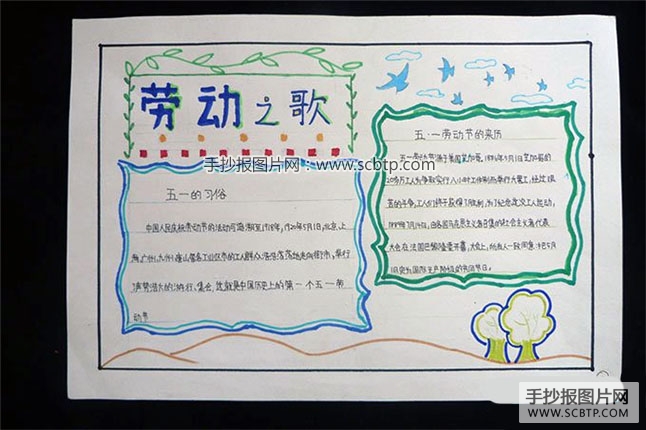 劳动之歌
手抄报图片网:www.scbtp.com
五一的习俗
中国人民庆祝劳动节的活动可追溯至1918年,1920年5月1日,北京,上
海,广州,九州,唐山等各工业区市的工人群众浩浩荡荡地走向街市,举行
了声势浩大的游行、集会,这就是中国历史上的第一个五一劳
动节
五·一劳动节的来历
五一劳动节源于美国芝加哥,1886年5月1日芝加哥的
20多万工人为争取实行八小时工作制而举行大罢工,经过艰
苦的斗争,工人们终于获得了胜利,为了纪念这次工人运动,
1889年7月14日,由各国马克思主义者召集的社会主义者代表
大会在法国巴黎隆重开幕,大会上,与会人一致同意:把5月
1日定为国际无产阶级的共同节日。
手抄报图片网
WWW.SCBTP.COM